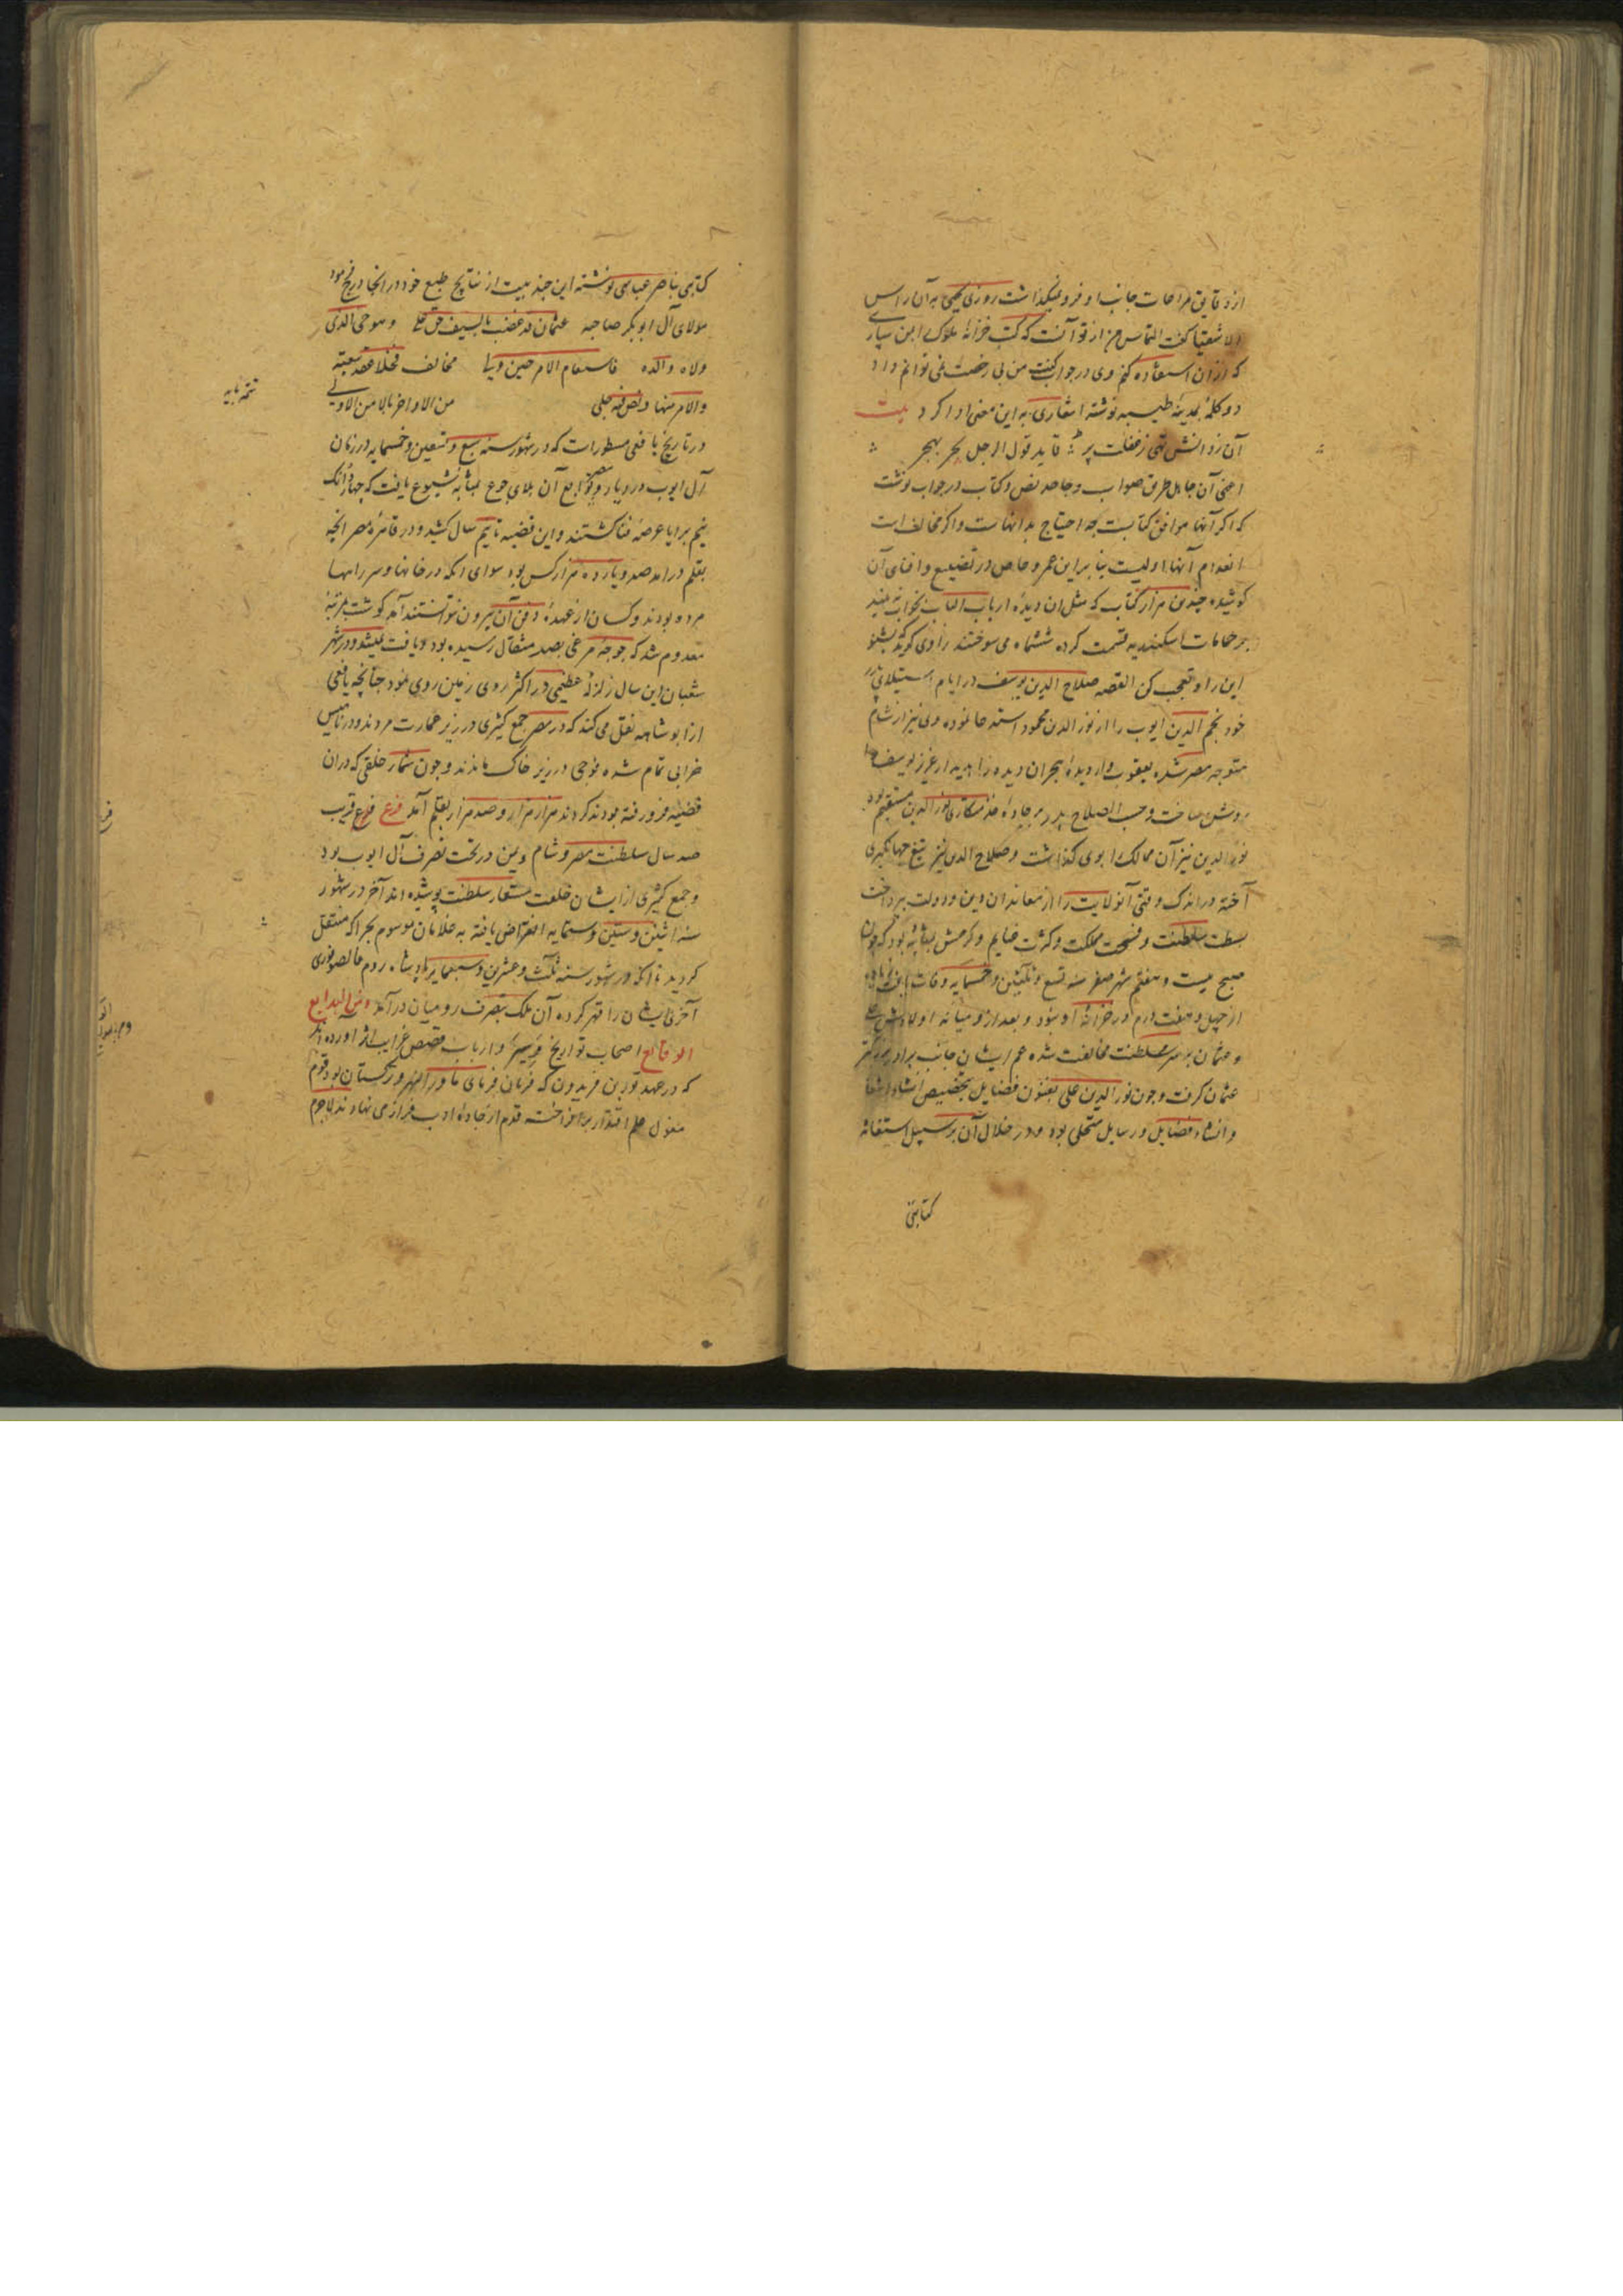 از دقایق مراعات جانب او فرو نمیگذاشت روزی یحیی به آن راس
الاشقیا گفت التماس من از تو آنست که کتب خزانه ملوک این دیار
که از آن استفاده کنم وی در جواب گفت من بی رخصت نمی توانم داد
دو کلمه بمدینه طیبه نوشته اشعاری به این معنی ادا کرد بیت
آن ز دانش تهی ز غفلت پر قاید قول الرجل
اعنی آن جاهل طرق صواب و جاحد نص و کتاب در جواب نوشت
که اگر آنها موافق کتابست چه احتیاج بدانهاست و اگر مخالف است
انعدام آنها اولیست بنا بر این عمرو عاص در تضییع و افنای آن
کوشیده چندین هزار کتاب که مثل ان دیده ارباب الباب بخواب نه بیند
بر حمامات اسکندریه قسمت کرده ششماه می سوختند راوی گوید بشنو
این را و تعجب کن القصه صلاح الدین یوسف در ایام استیلا پدر
خود نجم الدین ایوب را از نور الدین محمود استدعا نموده وی نیز از شام
متوجه مصر شده یعقوب وار دیده هجران دیده را بدیدار عزیز یوسف
روشن ساخت و حسب الصلاح پدر بر جاده خدمتکاری نور الدین مستقیم بود
نور الدین نیز آن ممالک را بوی گذاشت و صلاح الدین نیز تیغ جهانگیری
آخته در اندک وقتی آنولایت را از معاندان دین و دولت بپرداخت
بسطت سلطنت و فسحت مملکت و کثرت غنایم و کرمش بمثابه بود که چون
صبح بیست و هفتم شهر صفر سنه تسع و ثمانین و خمسمایه وفات یافت زیاده
از چهل و هفت درم در خزانه او نبود و بعد از و میانه اولادش علی
و عثمان بر سر سلطنت مخالفت شده عم ایشان جانب برادر بزرگتر
عثمان گرفت و چون نور الدین علی بفنون فضایل بتخصیص انشاد اشعار
و انشاء فضایل و رسایل متحلی بود و در خلال آن بر سبیل استغاثه
کتابتی
کتابتی بناصر عباسی نوشته این چند بیت از نتایج طبع خود در انجا درج نمود
مولای آل ابوبکر صاحبه عثمان قد غضب بالسیف حق علی و هو حی الذی
ولاه والده فاستقام الامر حین ولیا مخالف فحلا عقد بیعته
والامر منهما والنص فیه جلی من الاواخر ما لا من الاولی
تتمه بابه
در تاریخ یافعی مسطورات که در شهور سنه سبع و تسعین و خمسمایه در زمان
آل ایوب در دیار مصر و توابع آن بلای جوع بمثابه شیوع یافت که چهار دانک
نیم برایا عرضه فنا گشتند و این قضیه تا نیم سال کشید و در قاهره مصر انچه
بقلم درامد صد و یازده هزار کس بود سوای انکه در خانها و سر راهها
مرده بودند و کسان از عهده دفن آن بیرون نتوانستند آمد گوشت بمرتبه
معدوم شد که جوجه مرغی بصد مثقال رسیده بود و یافت نمیشد و در شهر
شعبان این سال زلزله عظیمی در اکثر روی زمین روی نمود چنانچه یافعی
از ابو شامه نقل می کند که در مصر جمع کثیری در زیر عمارت مردند و در نابلس
خرابی تمام شده فوجی در زیر خاک ماندند و چون شمار خلقی که در ان
قضیه فرو رفته بودند کردند هزار هزار و صد هزار بقلم آمد فرع فرع قریب
صد سال سلطنت مصر و شام و یمن در تحت تصرف آل ایوب بود
و جمع کثیری از ایشان خلعت مستعار سلطنت پوشیده اند آخر در شهور
سنه اثنین و ستین و ستمایه انقراض یافته به غلامان موسوم بجراکه منتقل
کردید تا انکه در شهور سنه ثلث و عشرین و تسعمایه پادشاه روم
آخر ایشان را قهر کرده آن ملک بتصرف رومیان درآمد و من البدایع
الوقایع اصحاب تواریخ و سیر و ارباب قصص غرایب اثر آورده اند
که در عهد تور بن فریدون که فرمان فرمای ماوراء النهر و ترکستان بود قوم
مغول علم اقتدار برافراخته قدم از جاده ادب فراز می نهادند لاجرم